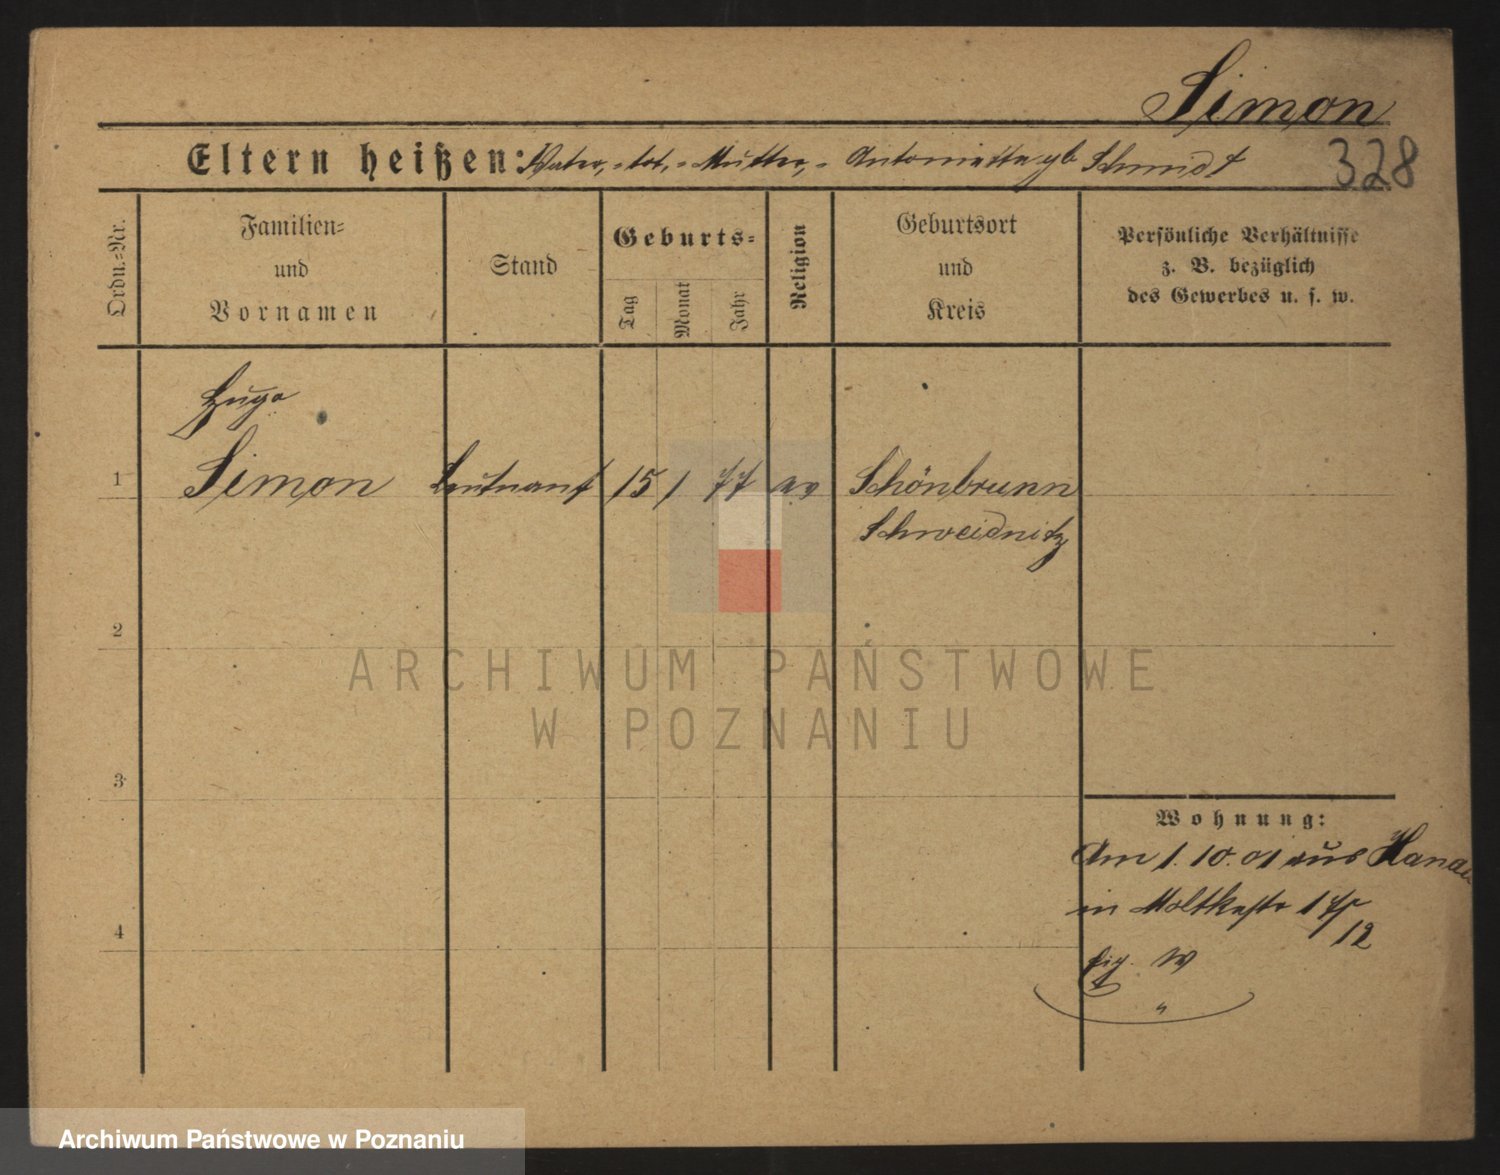 Simon
Eltern heißen: Vater, - tot, - Mutter, - Antonietta gb Schmidt
328
Ordn.-Nr.
Familien-
und
Vornamen
Stand
Geburts-
Tag
Monat
Jahr
Religion
Geburtsort
und
Kreis
Persönliche Verhältnisse
z. B. bezüglich
des Gewerbes u. s. w.
Hugo
1 Simon Leutnant 15 1 77 ev Schönbrunn
Schweidnitz
2
3
4
Wohnung:
Am 1. 10. 01 aus Hanau
in Moltkestr 17/
12
eig. W
"
ARCHIWUM PAŃSTWOWE
W POZNANIU
Archiwum Państwowe w Poznaniu